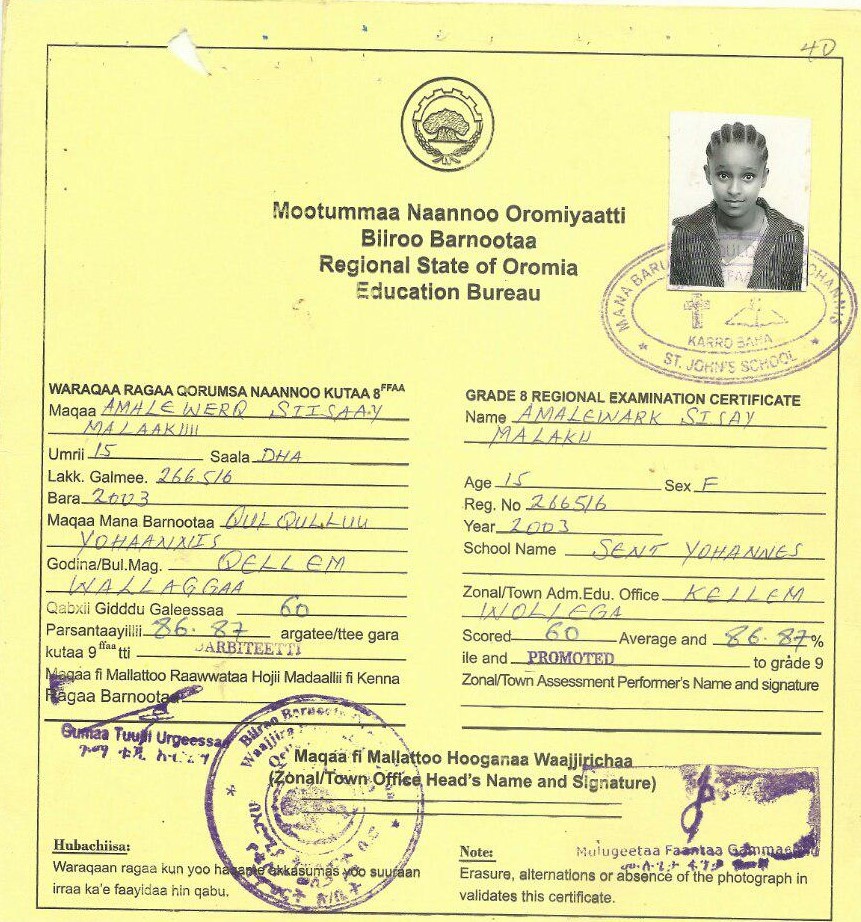 40
Mootummaa Naannoo Oromiyaatti
Biiroo Barnootaa
Regional State of Oromia
Education Bureau
MANA BARU
OHANNIS
KARRO BAHA
ST. JOHN'S SCHOOL
WARAQAA RAGAA QORUMSA NAANNOO KUTAA 8FFAA
Maqaa AMALEWERQ SIISAAY
MALAAKIIII
Umrii 15 Saala DHA
Lakk. Galmee. 266516
Bara 2003
Maqaa Mana Barnootaa QULQULLUU
YOHAANNIS
Godina/Bul.Mag. QELLEM
WALLAGGAA
Qabxii Gidddu Galeessaa 60
Parsantaayilii 86.87 argatee/ttee gara
kutaa 9ffaa tti DARBITEETTI
Maqaa fi Mallattoo Raawwataa Hojii Madaallii fi Kenna
Ragaa Barnootaa
Gumaa Tuujii Urgeessaa
GRADE 8 REGIONAL EXAMINATION CERTIFICATE
Name AMALEWARK SISAY
MALAKU
Age 15 Sex F
Reg. No 266516
Year 2003
School Name SENT YOHANNES
Zonal/Town Adm.Edu. Office KELLEM
WOLLEGA
Scored 60 Average and 86.87%
ile and PROMOTED to grade 9
Zonal/Town Assessment Performer's Name and signature
Biiroo Barnoota
Waajjira
Maqaa fi Mallattoo Hooganaa Waajjirichaa
(Zonal/Town Office Head's Name and Signature)
Mulugeetaa Faantaa Gammachuu
ሙሉጌታ ፋንታ
Hubachiisa:
Waraqaan ragaa kun yoo haqame akkasumas yoo suuraan
irraa ka'e faayidaa hin qabu.
Note:
Erasure, alternations or absence of the photograph in
validates this certificate.